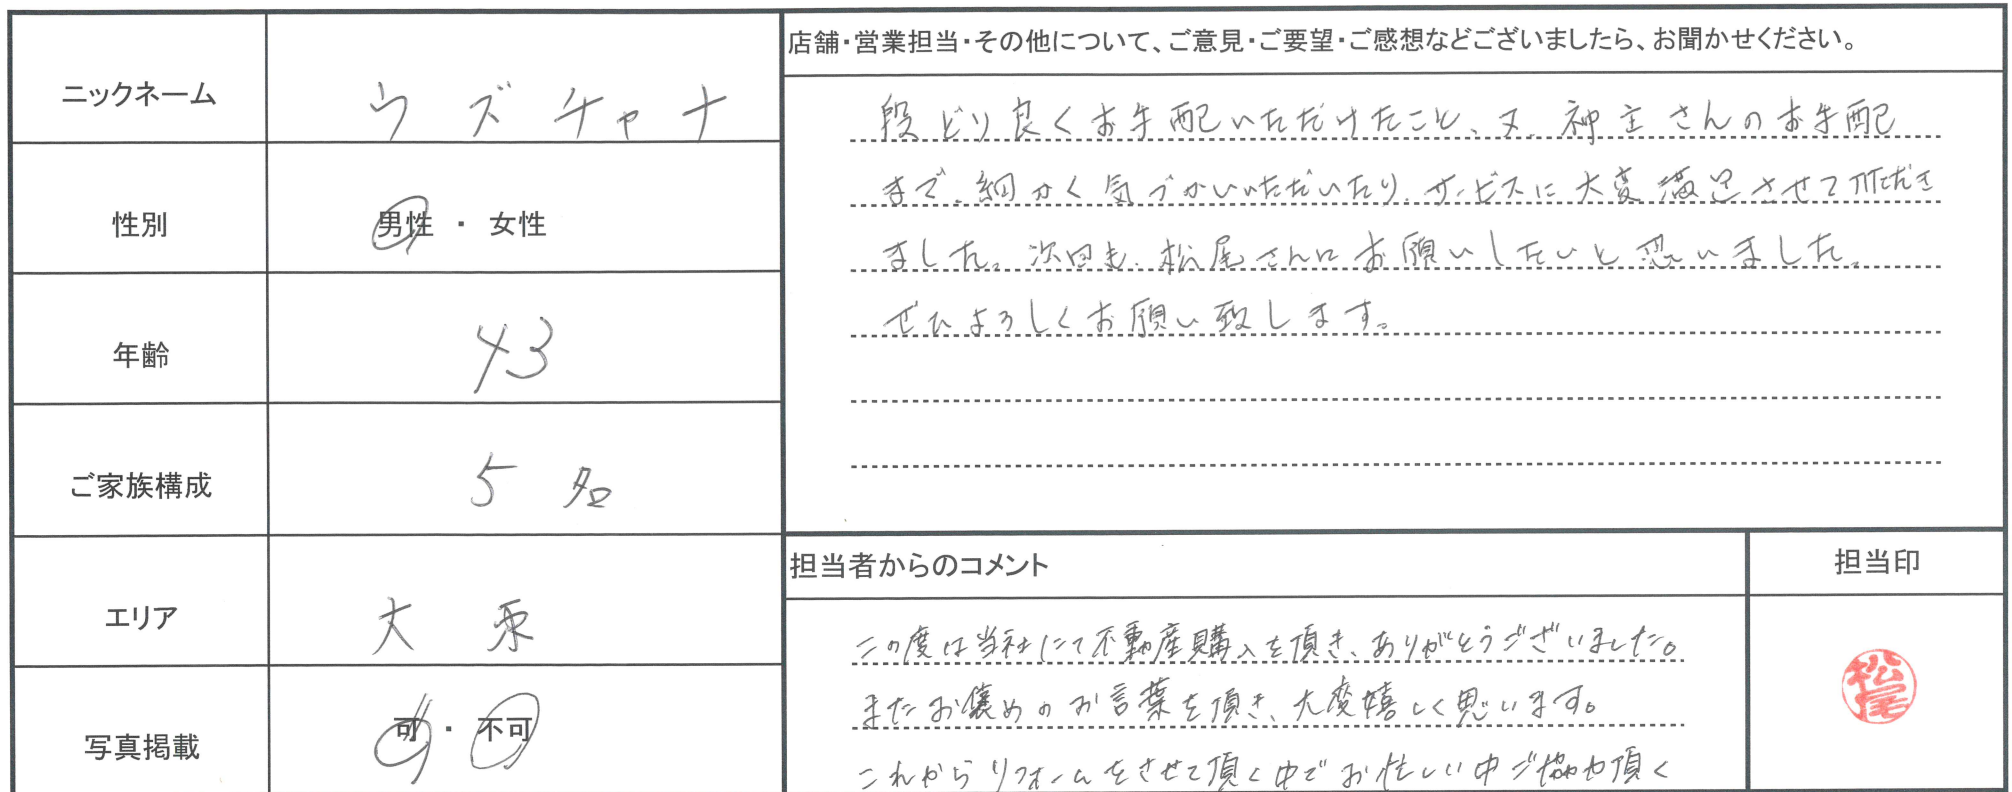 ニックネーム
ウズチャナ
性別
男性・女性
年齢
43
ご家族構成
5名
エリア
大東
写真掲載
可・不可
店舗・営業担当・その他について、ご意見・ご要望・ご感想などございましたら、お聞かせください。
段どり良くお手配いただけたこと、又、神主さんのお手配
まで、細かく気づかいいただいたり、サービスに大変満足させて頂だき
ました。次回も、松尾さんにお願いしたいと思いました。
ぜひよろしくお願い致します。
担当者からのコメント
この度は当社にて不動産購入を頂き、ありがとうございました。
またお褒めのお言葉を頂き、大変嬉しく思います。
これからリフォームをさせて頂く中でお忙しい中ご協力頂く
担当印
松尾